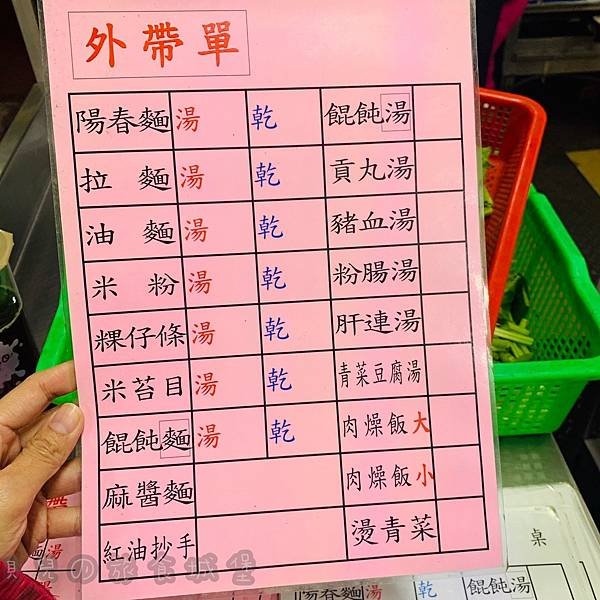 外帶單
陽春麵 湯 乾 餛飩湯
拉麵 湯 乾 貢丸湯
油麵 湯 乾 豬血湯
米粉 湯 乾 粉腸湯
粿仔條 湯 乾 肝連湯
米苔目 湯 乾 青菜豆腐湯
餛飩麵 湯 乾 肉燥飯大
麻醬麵 肉燥飯小
紅油抄手 燙青菜
桌
湯
陽春麵 湯 乾 餛飩湯
の旅食城堡